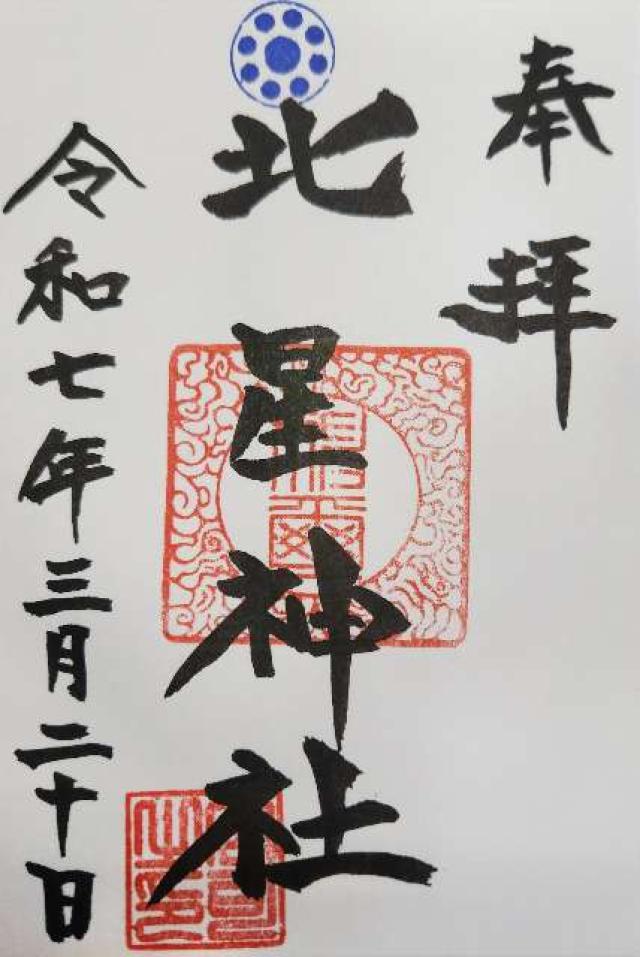 奉拝
北星神社
令和七年三月二十日